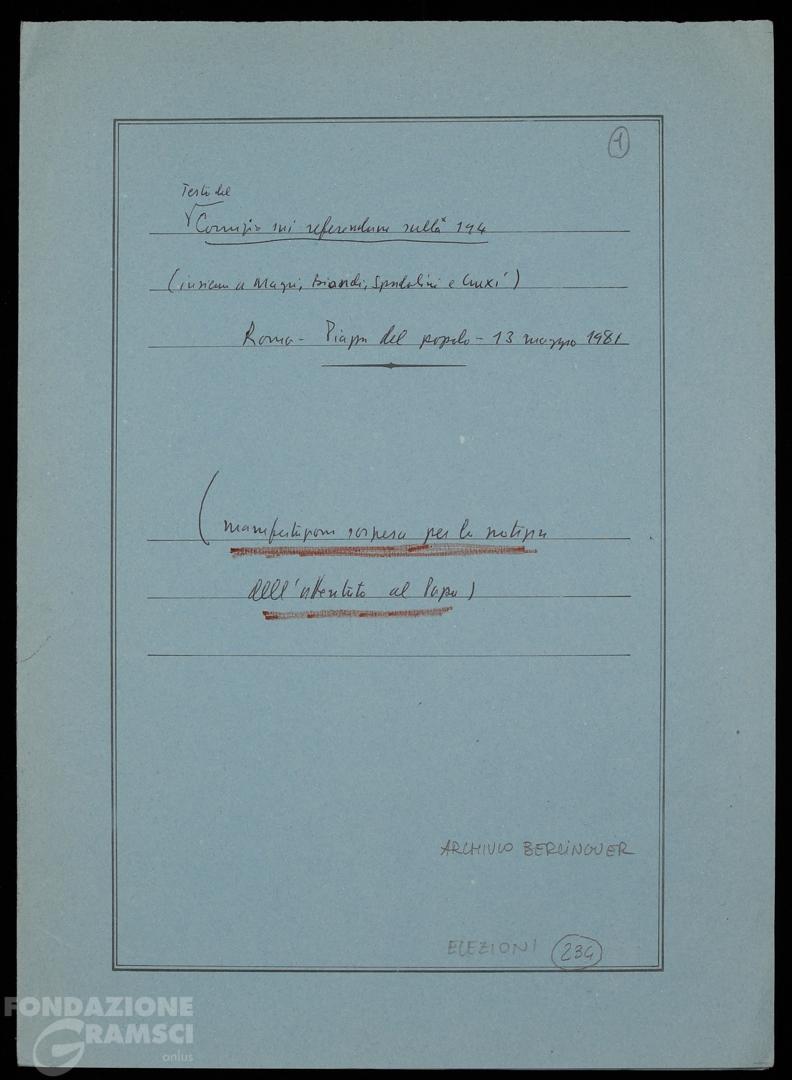 1
Testo del
Comizio sui referendum sulla 194
(insieme a Magri, Biondi, Spadolini e Craxi)
Roma - Piazza del popolo - 13 maggio 1981
(manifestazione sospesa per la notizia
dell'attentato al Papa)
ARCHIVIO BERLINGUER
ELEZIONI 234
FONDAZIONE
GRAMSCI
onlus